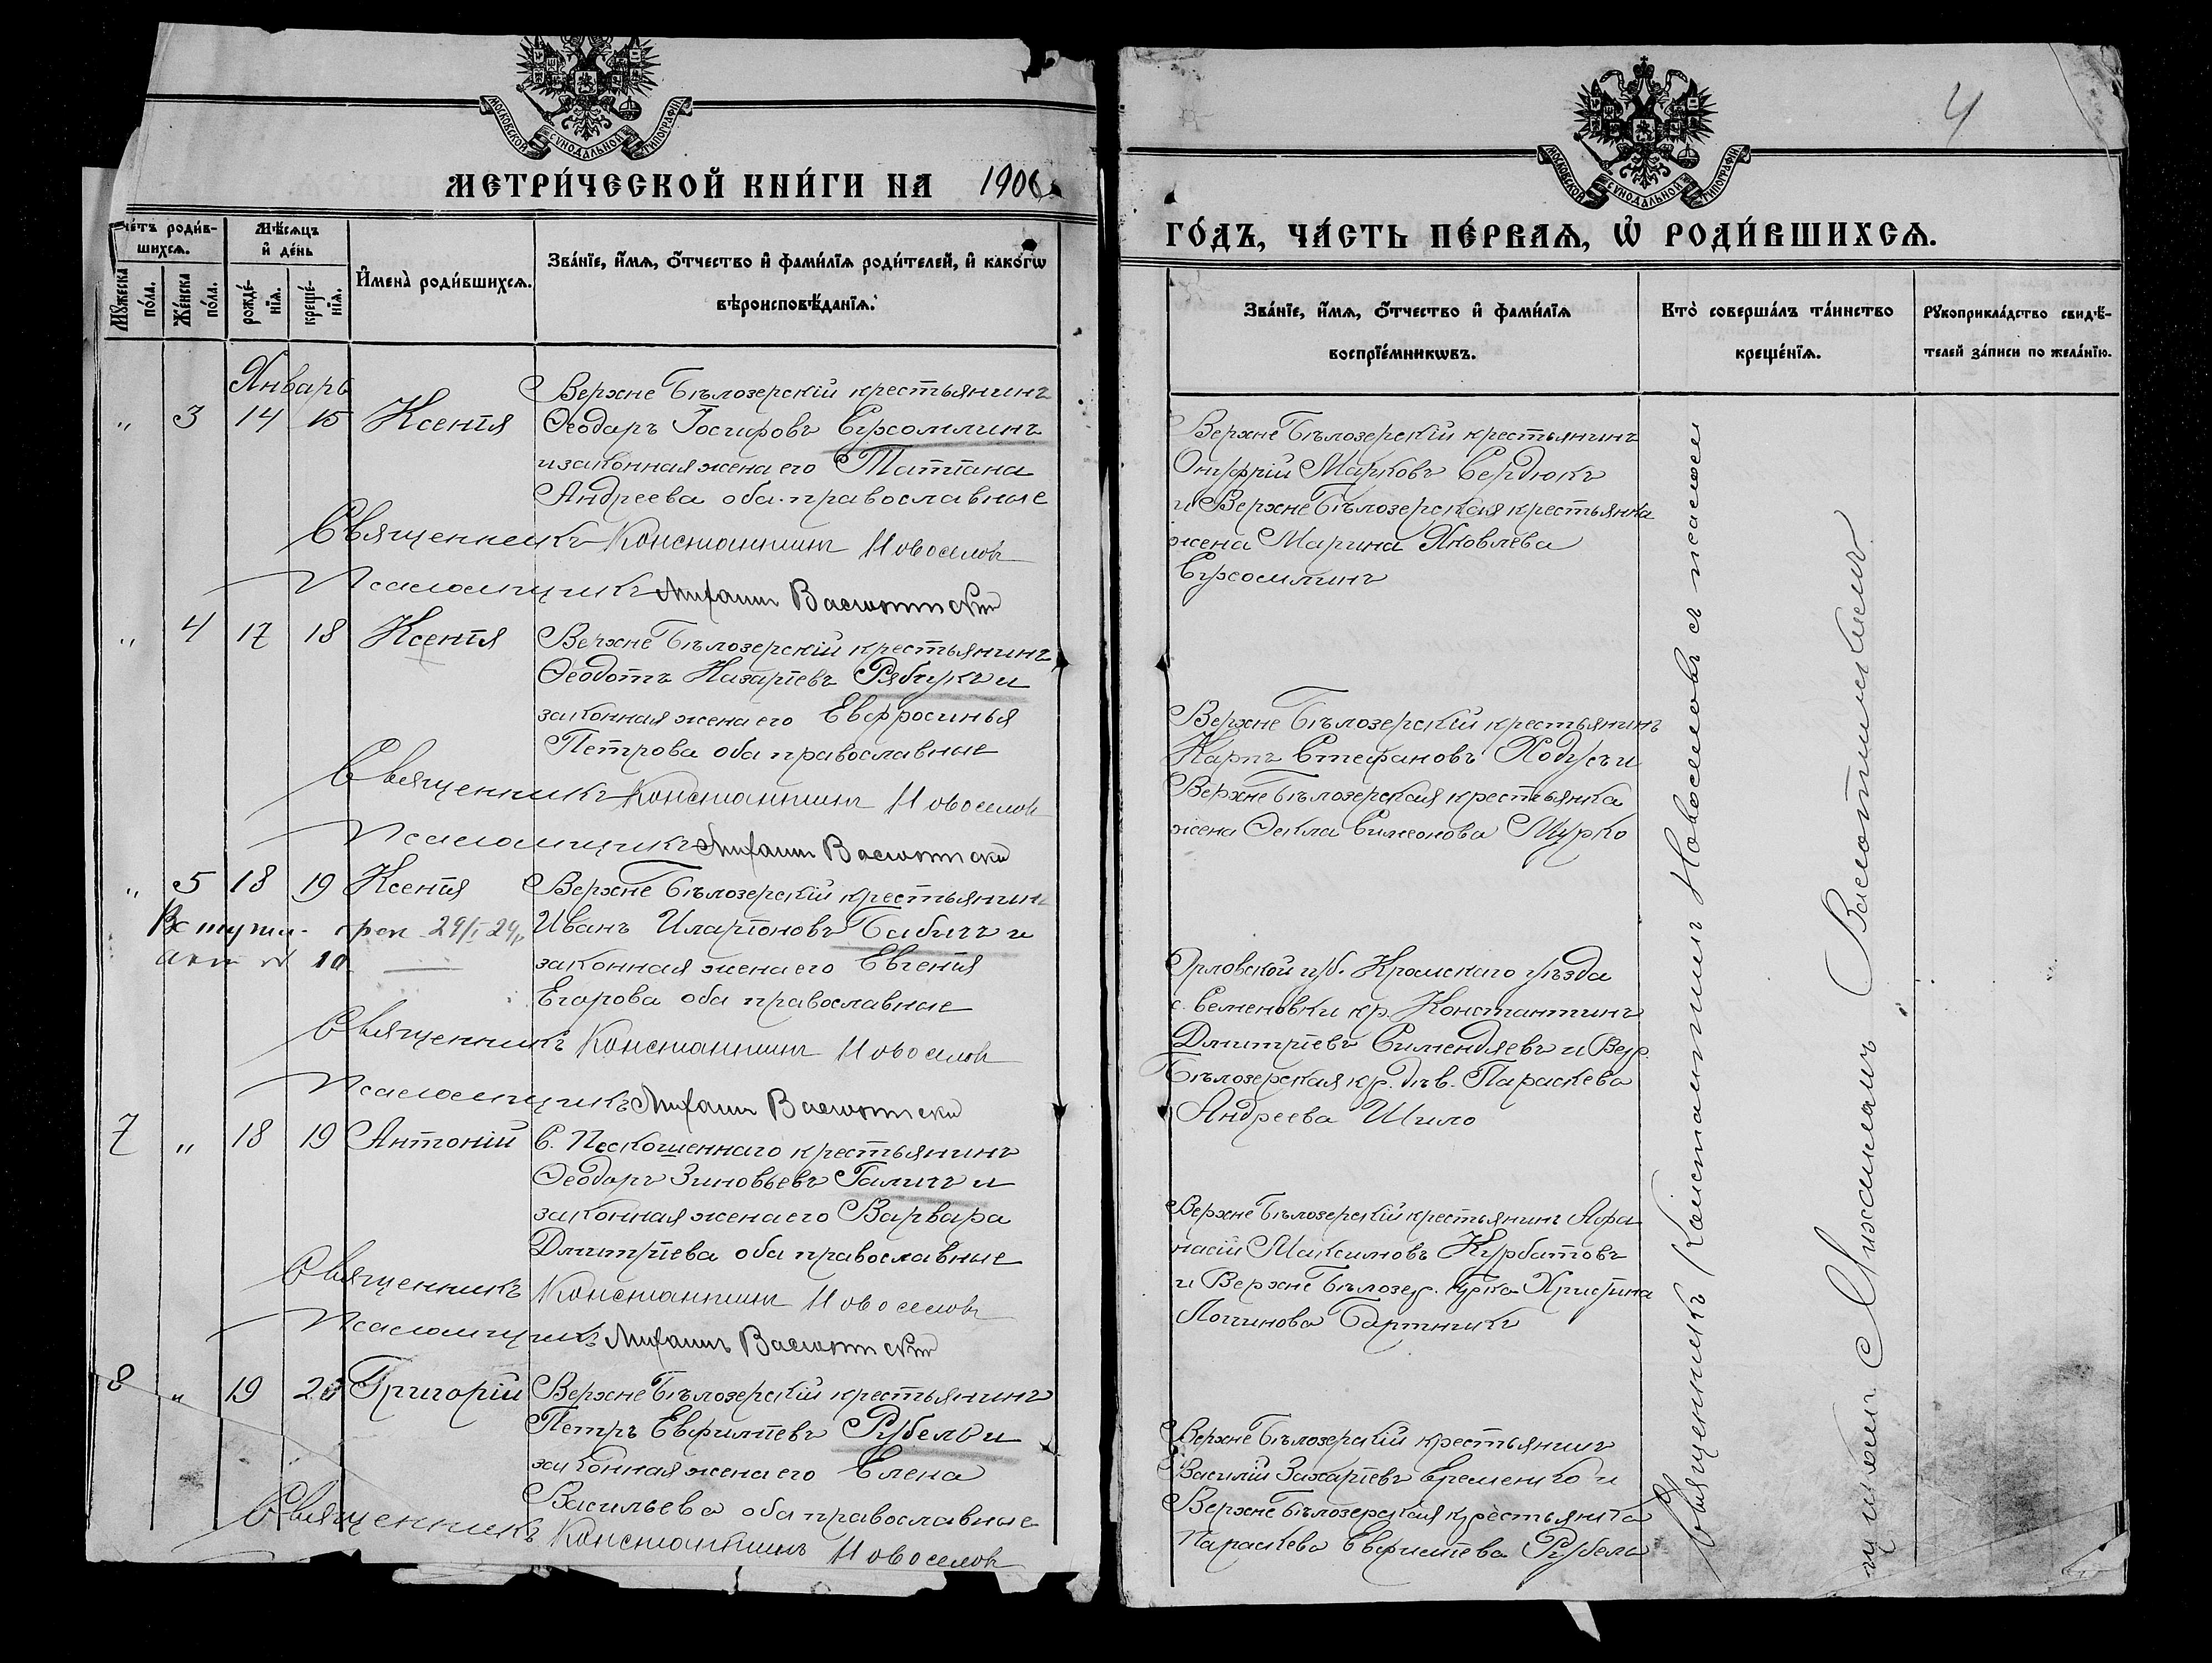 МОСКОВСКОЙ СѴНОДАЛЬНОЙ ТИПОГРАФІИ
МЕТРИ́ЧЕСКОЙ КНИ́ГИ НА 1906
че́тъ роди́в-
шихсѧ.
Мꙋ́жеска по́ла.
Же́нска по́ла.
Мѣ́сѧцъ
и҆ де́нь
рожде́-
нїѧ.
креще́-
нїѧ.
И҆мена̀ роди́вшихсѧ.
Зва́нїе, и҆́мѧ, ѻ҆́тчество и҆ фами́лїѧ роди́телей, и҆ како́гѡ
вѣроисповѣ́данїѧ.
Январь
" 3 14 15 Ксенія
Верхне Бѣлозерскій крестьянинъ
Ѳеодоръ Іосифовъ
и законная жена его Татіана
Андреева оба православные
Священникъ Константинъ Новоселовъ
Псаломщикъ Михаилъ
" 4 17 18 Ксенія
Верхне Бѣлозерскій крестьянинъ
Ѳеодотъ Назаріевъ Рябуха и
законная жена его Евфросинья
Петрова оба православные
Священникъ Константинъ Новоселовъ
Псаломщикъ Михаилъ
" 5 18 19 Ксенія
Верхне Бѣлозерскій крестьянинъ
Иванъ Иларіоновъ Бабичъ и
законная жена его Евгенія
Егорова оба православные
Священникъ Константинъ Новоселовъ
Псаломщикъ Михаилъ
7 " 18 19 Антоній
С. Нескошеннаго крестьянинъ
Ѳеодоръ Зиновьевъ Галичъ и
законная жена его Варвара
Димитріева оба православные
Священникъ Константинъ Новоселовъ
Псаломщикъ Михаилъ
8 " 19 20 Григорій
Верхне Бѣлозерскій крестьянинъ
Петръ Евфиміевъ Рубель и
законная жена его Елена
Васильева оба православные
Священникъ Константинъ Новоселовъ
4
МОСКОВСКОЙ СѴНОДАЛЬНОЙ ТИПОГРАФІИ
ГО́ДЪ, ЧА́СТЬ ПЕ́РВАѦ, Ѡ҆ РОДИ́ВШИХСѦ.
Зва́нїе, и҆́мѧ, ѻ҆́тчество и҆ фами́лїѧ
воспрїе́мникѡвъ.
Кто̀ соверша́лъ та́инство
креще́нїѧ.
Рꙋкоприкла́дство свидѣ́-
телей за́писи по жела́нїю.
Верхне Бѣлозерскій крестьянинъ
Онуфрій Марковъ Сердюкъ
и Верхне Бѣлозерская крестьянка
жена Марина Яковлева
Верхне Бѣлозерскій крестьянинъ
Карпъ Стефановъ Ходусъ и
Верхне Бѣлозерская крестьянка
жена Ѳекла Симеонова
Орловской губ. Кромскаго уѣзда
с. Семеновки кр. Константинъ
Димитріевъ Симендяевъ и Верх.
Бѣлозерская кр. дѣв. Параскева
Андреева Шило
Верхне Бѣлозерскій крестьянинъ Афа
насій Максимовъ Курбатовъ
и Верхне Бѣлозер. кр-ка Христина
Логинова
Верхне Бѣлозерскій крестьянинъ
Василій Захаріевъ Еременко и
Верхне Бѣлозерская крестьянка
Параскева Евфиміева Рубель
Священникъ Константинъ Новоселовъ съ псалом
щикомъ Михаиломъ